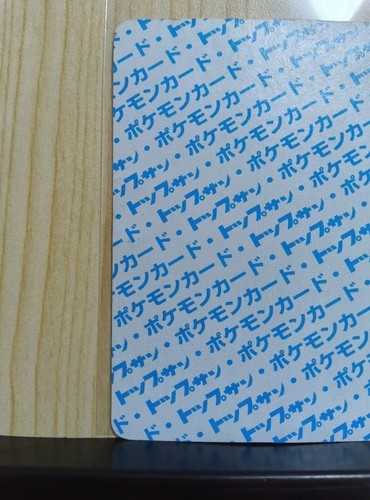 ード・
モンカード・トップサン
ポケモンカード・トップサン・
・ポケモンカード・トップサン
トップサン・ポケモンカード・
・トップサン・ポケモンカード
ド・トップサン・ポケモン
カード・トップサン・ポケモン
ンカード・トップサン・ポケ
モンカード・トップサン・
ポケモンカード・トップサン
・ポケモンカード・トップ
サン・ポケモンカード・
トップサン・ポケモンカード
・トップサン・ポケモン
ド・トップサン・ポケ
トップサン・